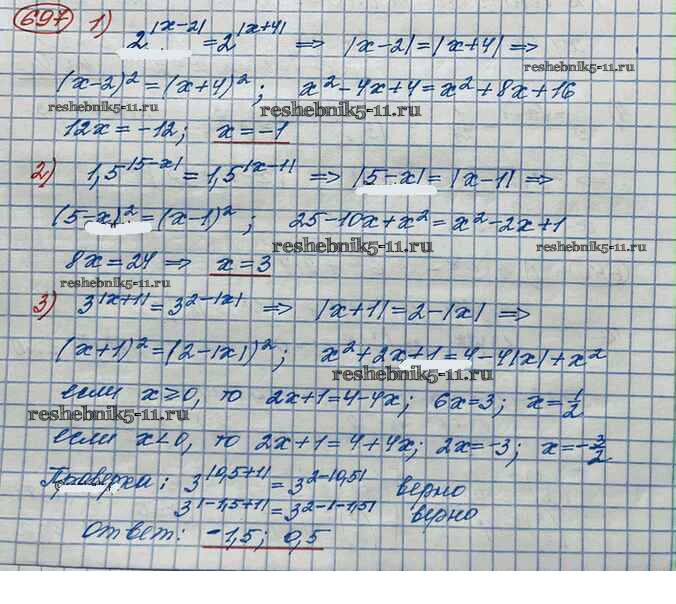 697 1) 2^|x-2| = 2^|x+4| => |x-2| = |x+4| =>
(x-2)² = (x+4)²; x²-4x+4 = x²+8x+16
reshebnik5-11.ru reshebnik5-11.ru reshebnik5-11.ru
12x = -12; x = -1
2) 1,5^|5-x| = 1,5^|x-1| => |5-x| = |x-1| =>
(5-x)² = (x-1)²; 25-10x+x² = x²-2x+1
reshebnik5-11.ru reshebnik5-11.ru
8x = 24 => x = 3
reshebnik5-11.ru
3) 3^|x+1| = 3^2-|x| => |x+1| = 2-|x| =>
(x+1)² = (2-|x|)²; x²+2x+1 = 4-4|x|+x²
reshebnik5-11.ru
если x≥0, то 2x+1=4-4x; 6x=3; x=1/2
reshebnik5-11.ru
если x<0, то 2x+1=4+4x; 2x=-3; x=-3/2
Проверка: 3^|0,5+1| = 3^2-|0,5| верно
3^|-1,5+1| = 3^2-|-1,5| верно
reshebnik5-11.ru
Ответ: -1,5; 0,5